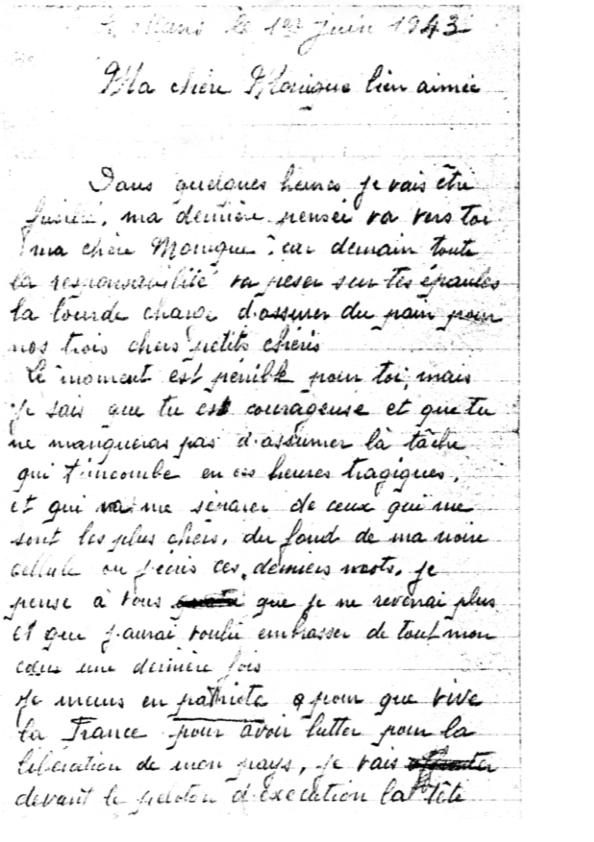 Le Mans le 1er juin 1943
Ma chère Monique bien aimée
Dans quelques heures je vais être
fusillé, ma dernière pensée va vers toi
ma chère Monique, car demain toute
la responsabilité va peser sur tes épaules
la lourde charge d'assurer du pain pour
nos trois chers petits chéris
Le moment est pénible pour toi, mais
je sais que tu es courageuse et que tu
ne manqueras pas d'assumer la tâche
qui t'incombe en ces heures tragiques,
et qui va me séparer de ceux qui me
sont les plus chers, du fond de ma noire
cellule ou j'écris ces derniers mots, je
pense à vous que je ne reverrai plus
et que j'aurai voulu embrasser de tout mon
cœur une dernière fois
Je meurs en patriote pour que vive
la France pour avoir lutter pour la
libération de mon pays, je vais
devant le peloton d'exécution la tête